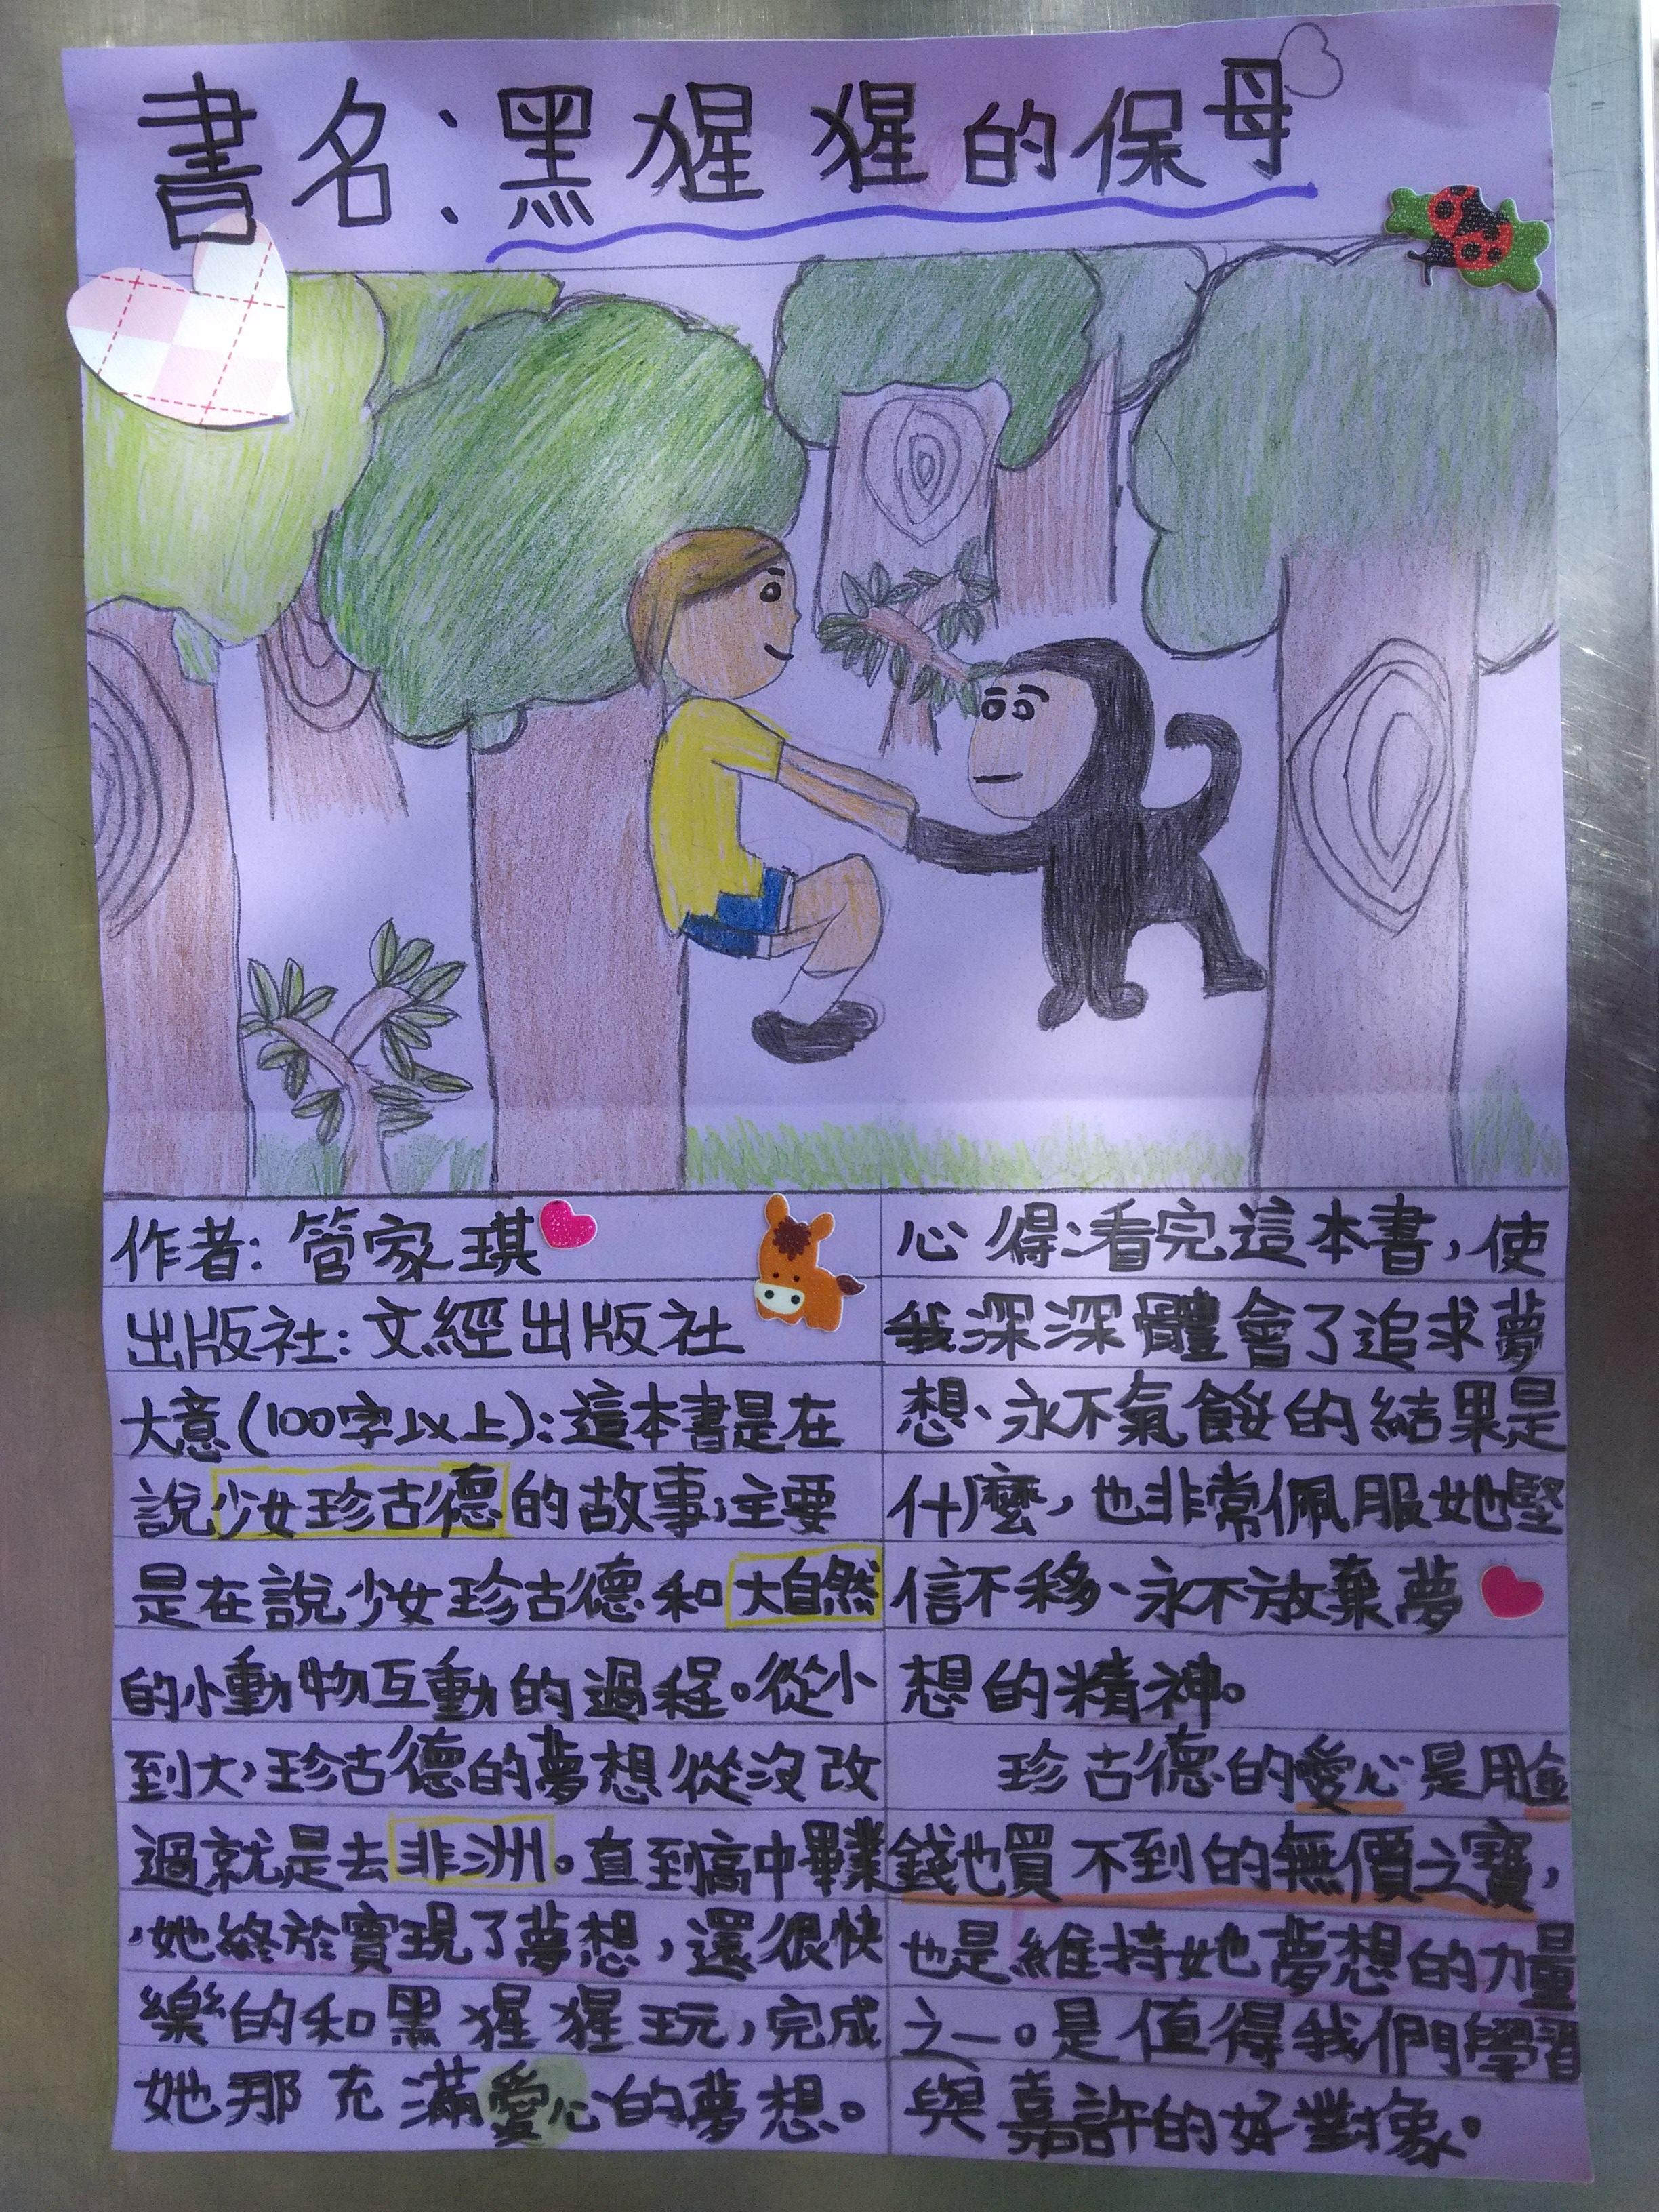 書名:黑猩猩的保母
作者:管家琪
出版社:文經出版社
大意(100字以上):這本書是在
說少女珍古德的故事,主要
是在說少女珍古德和大自然
的小動物互動的過程。從小
到大,珍古德的夢想從沒改
過就是去非洲。直到高中畢業
,她終於實現了夢想,還很快
樂的和黑猩猩玩,完成
她那充滿愛心的夢想。
心得:看完這本書,使
我深深體會了追求夢
想、永不氣餒的結果是
什麼,也非常佩服她堅
信不移、永不放棄夢
想的精神。
珍古德的愛心是用金
錢也買不到的無價之寶,
也是維持她夢想的力量
之一。是值得我們學習
與嘉許的好對象。